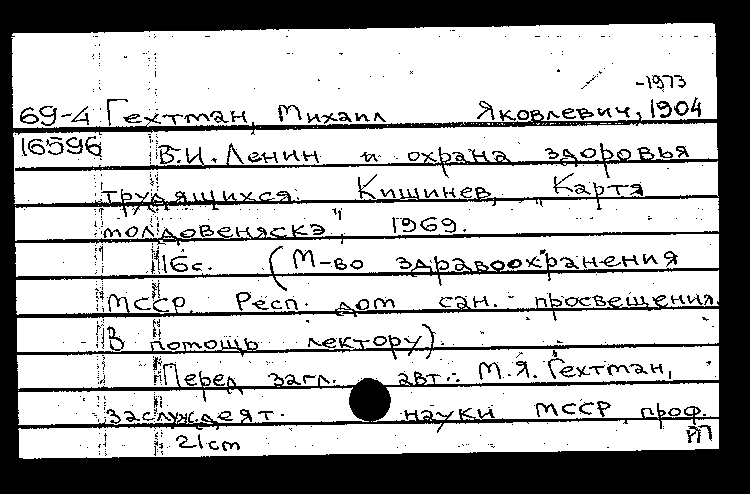 -1973
69-4 Гехтман, Михаил Яковлевич, 1904
16596 В.И. Ленин и охрана здоровья
трудящихся. Кишинев, „Картя
молдовеняскэ", 1969.
16с. (М-во здравоохранения
МССР. Респ. дом сан. просвещения.
В помощь лектору).
Перед загл. авт.: М.Я. Гехтман,
заслуж. деят. науки МССР, проф.
21cm РП